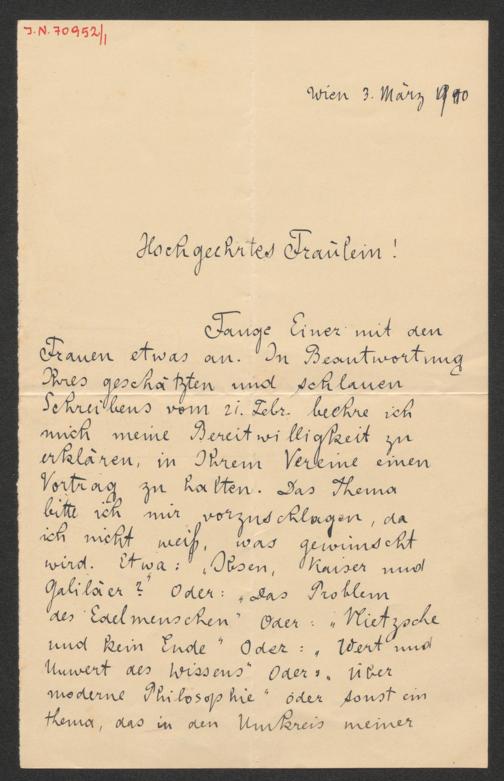 J.N. 70952/1
Wien 3. März 1910
Hochgeehrtes Fräulein!
Fange Einer mit den
Frauen etwas an. In Beantwortung
Ihres geschätzten und schlauen
Schreibens vom 21. Febr. beehre ich
mich meine Bereitwilligkeit zu
erklären, in Ihrem Vereine einen
Vortrag zu halten. Das Thema
bitte ich mir vorzuschlagen, da
ich nicht weiß, was gewünscht
wird. Etwa: „Ibsen, Kaiser und
Galiläer?“ Oder: „Das Problem
des Edelmenschen“ Oder: „Nietzsche
und kein Ende“ Oder: „Wert und
Unwert des Wissens“ Oder: „Über
moderne Philosophie“ oder sonst ein
Thema, das in den Umkreis meiner